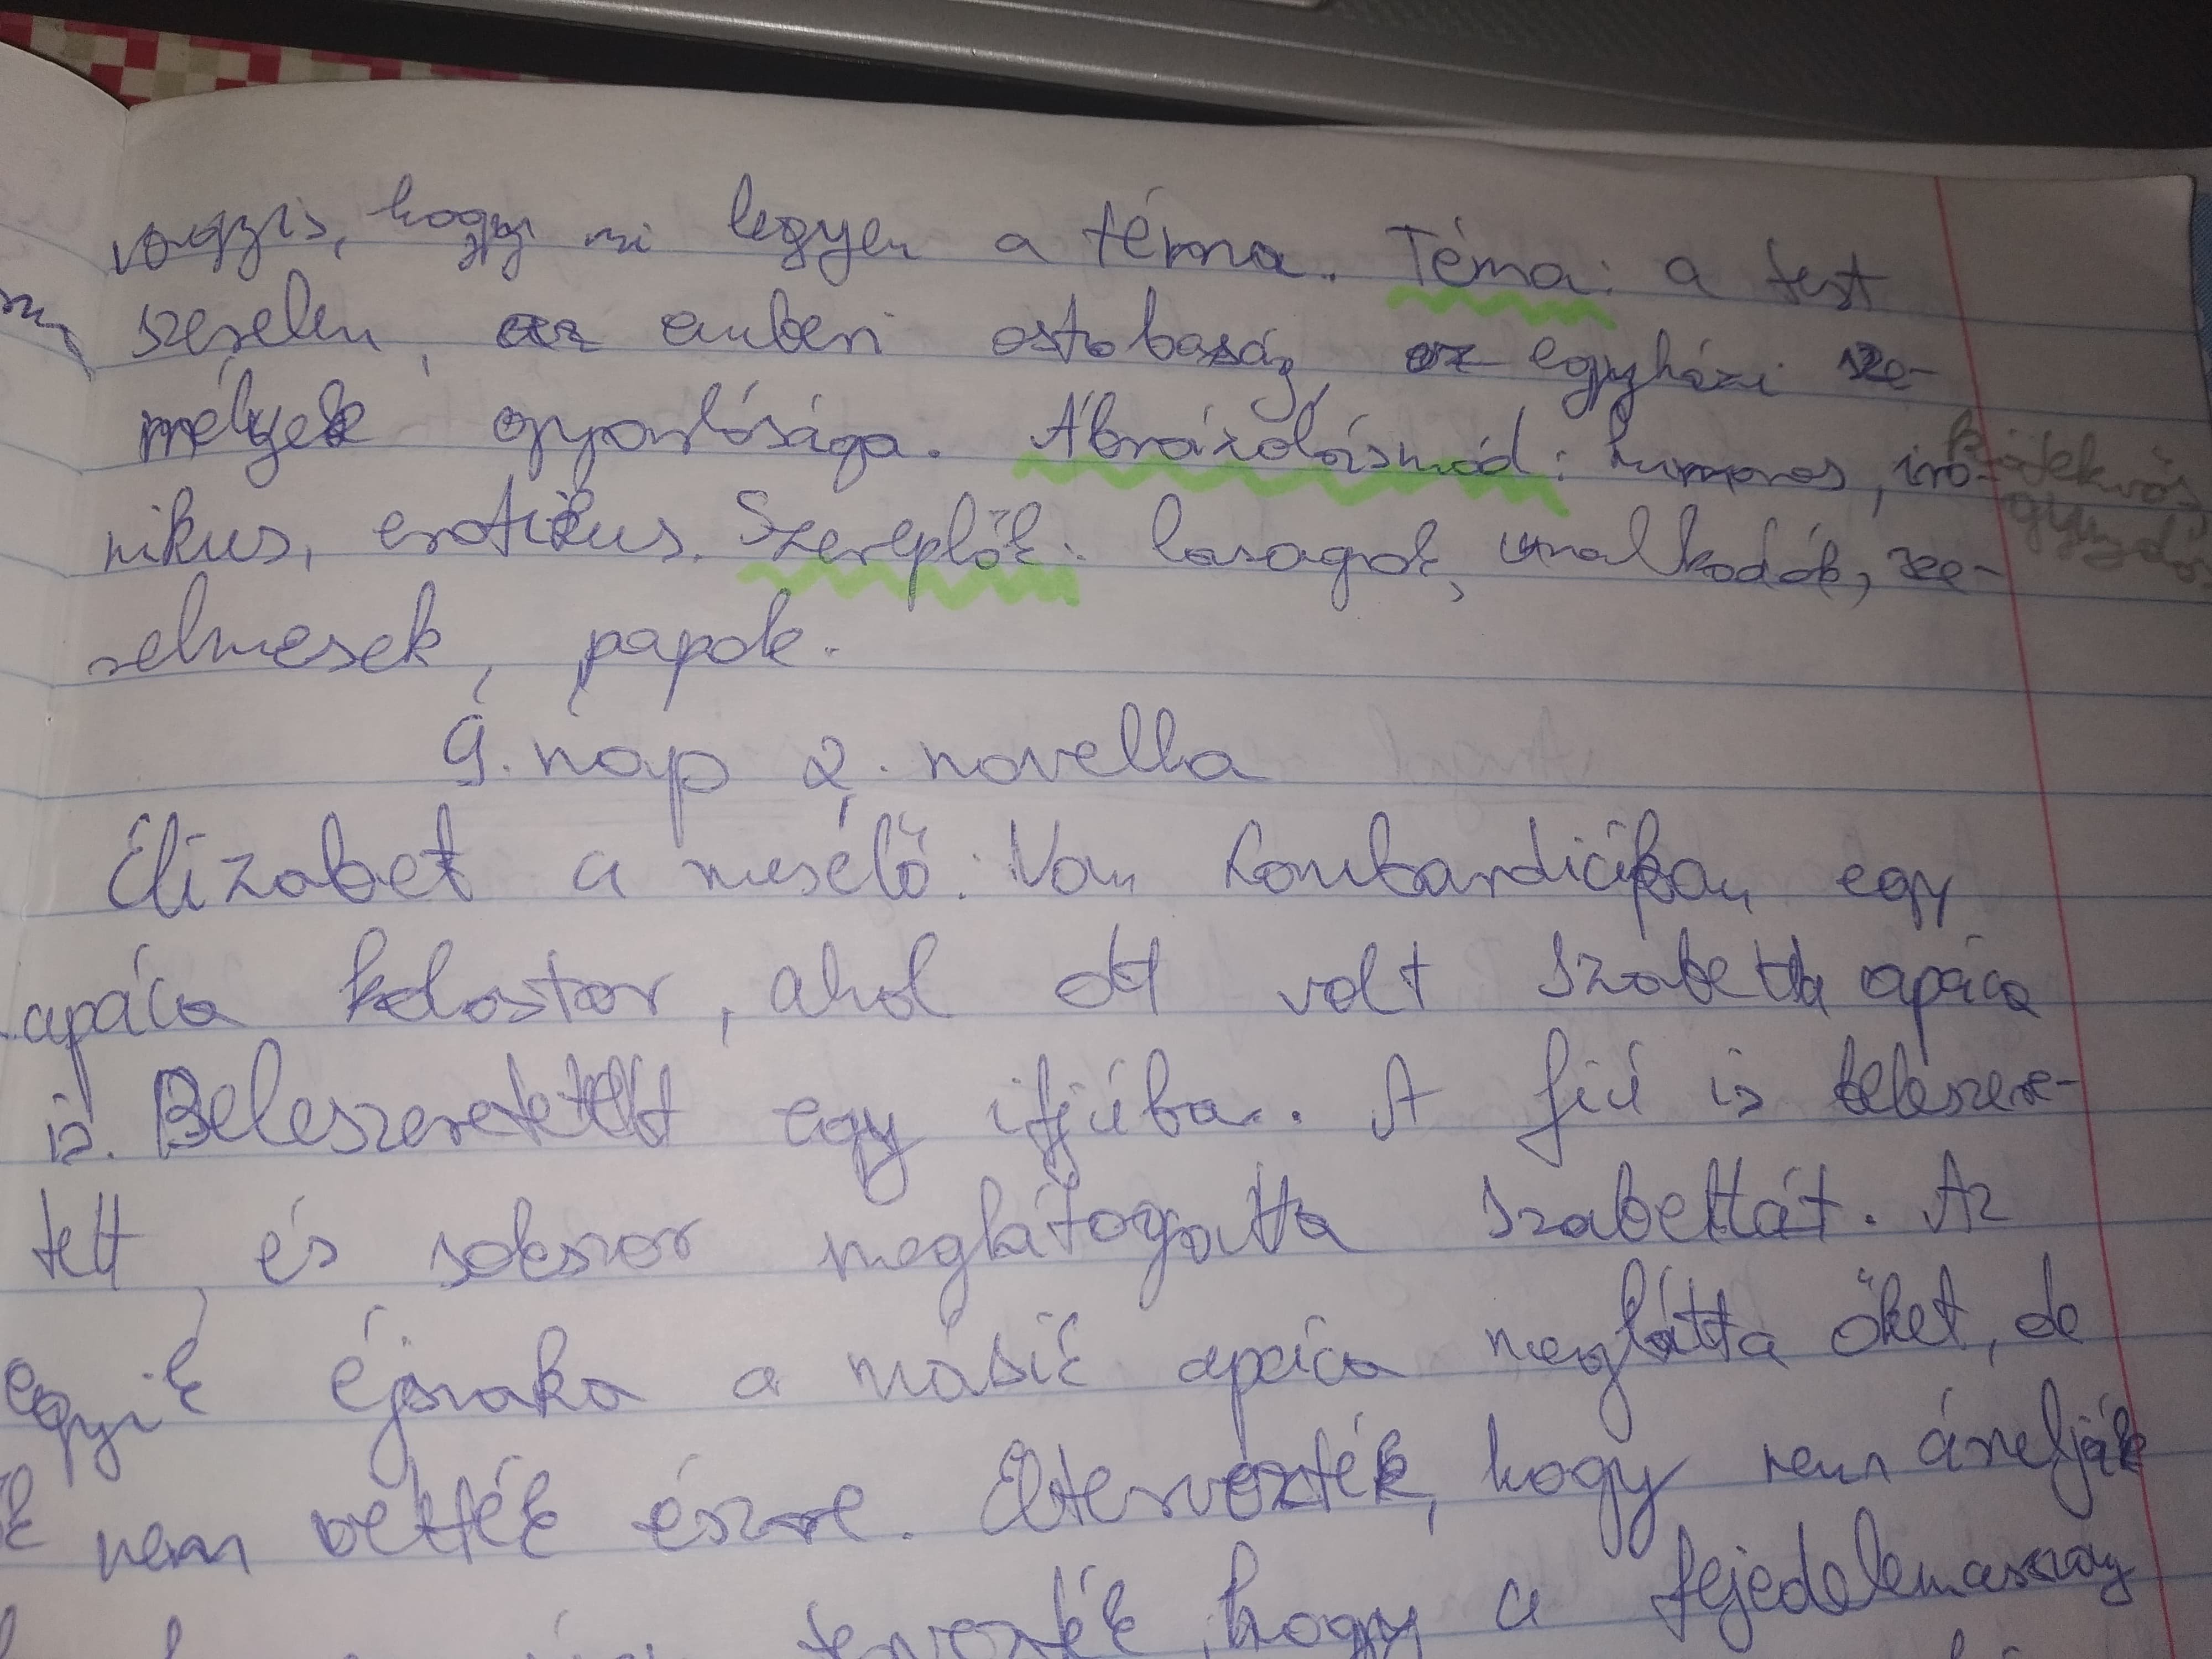 vagyis, hogy mi legyen a téma. Téma: a test
szerelem, az emberi ostobaság, az egyházi sze-
mélyek gyarlósága. Ábrázolásmód: humoros, iro-
nikus, erotikus. Szereplők: lovagok, uralkodók, sze-
relmesek, papok.
9. nap 2. novella
Elizabet a mesélő. Van Lombardiában egy
apáca kolostor, ahol ott volt Izabetta apáca
is. Beleszeretett egy ifjúba. A fiú is beleszere-
tett, és sokszor meglátogatta Izabettát. Az
egyik éjszaka a másik apáca meglátta őket, de
ők nem vették észre. Eltervezték, hogy nem árulják
tervezték, hogy a fejedelemasszony